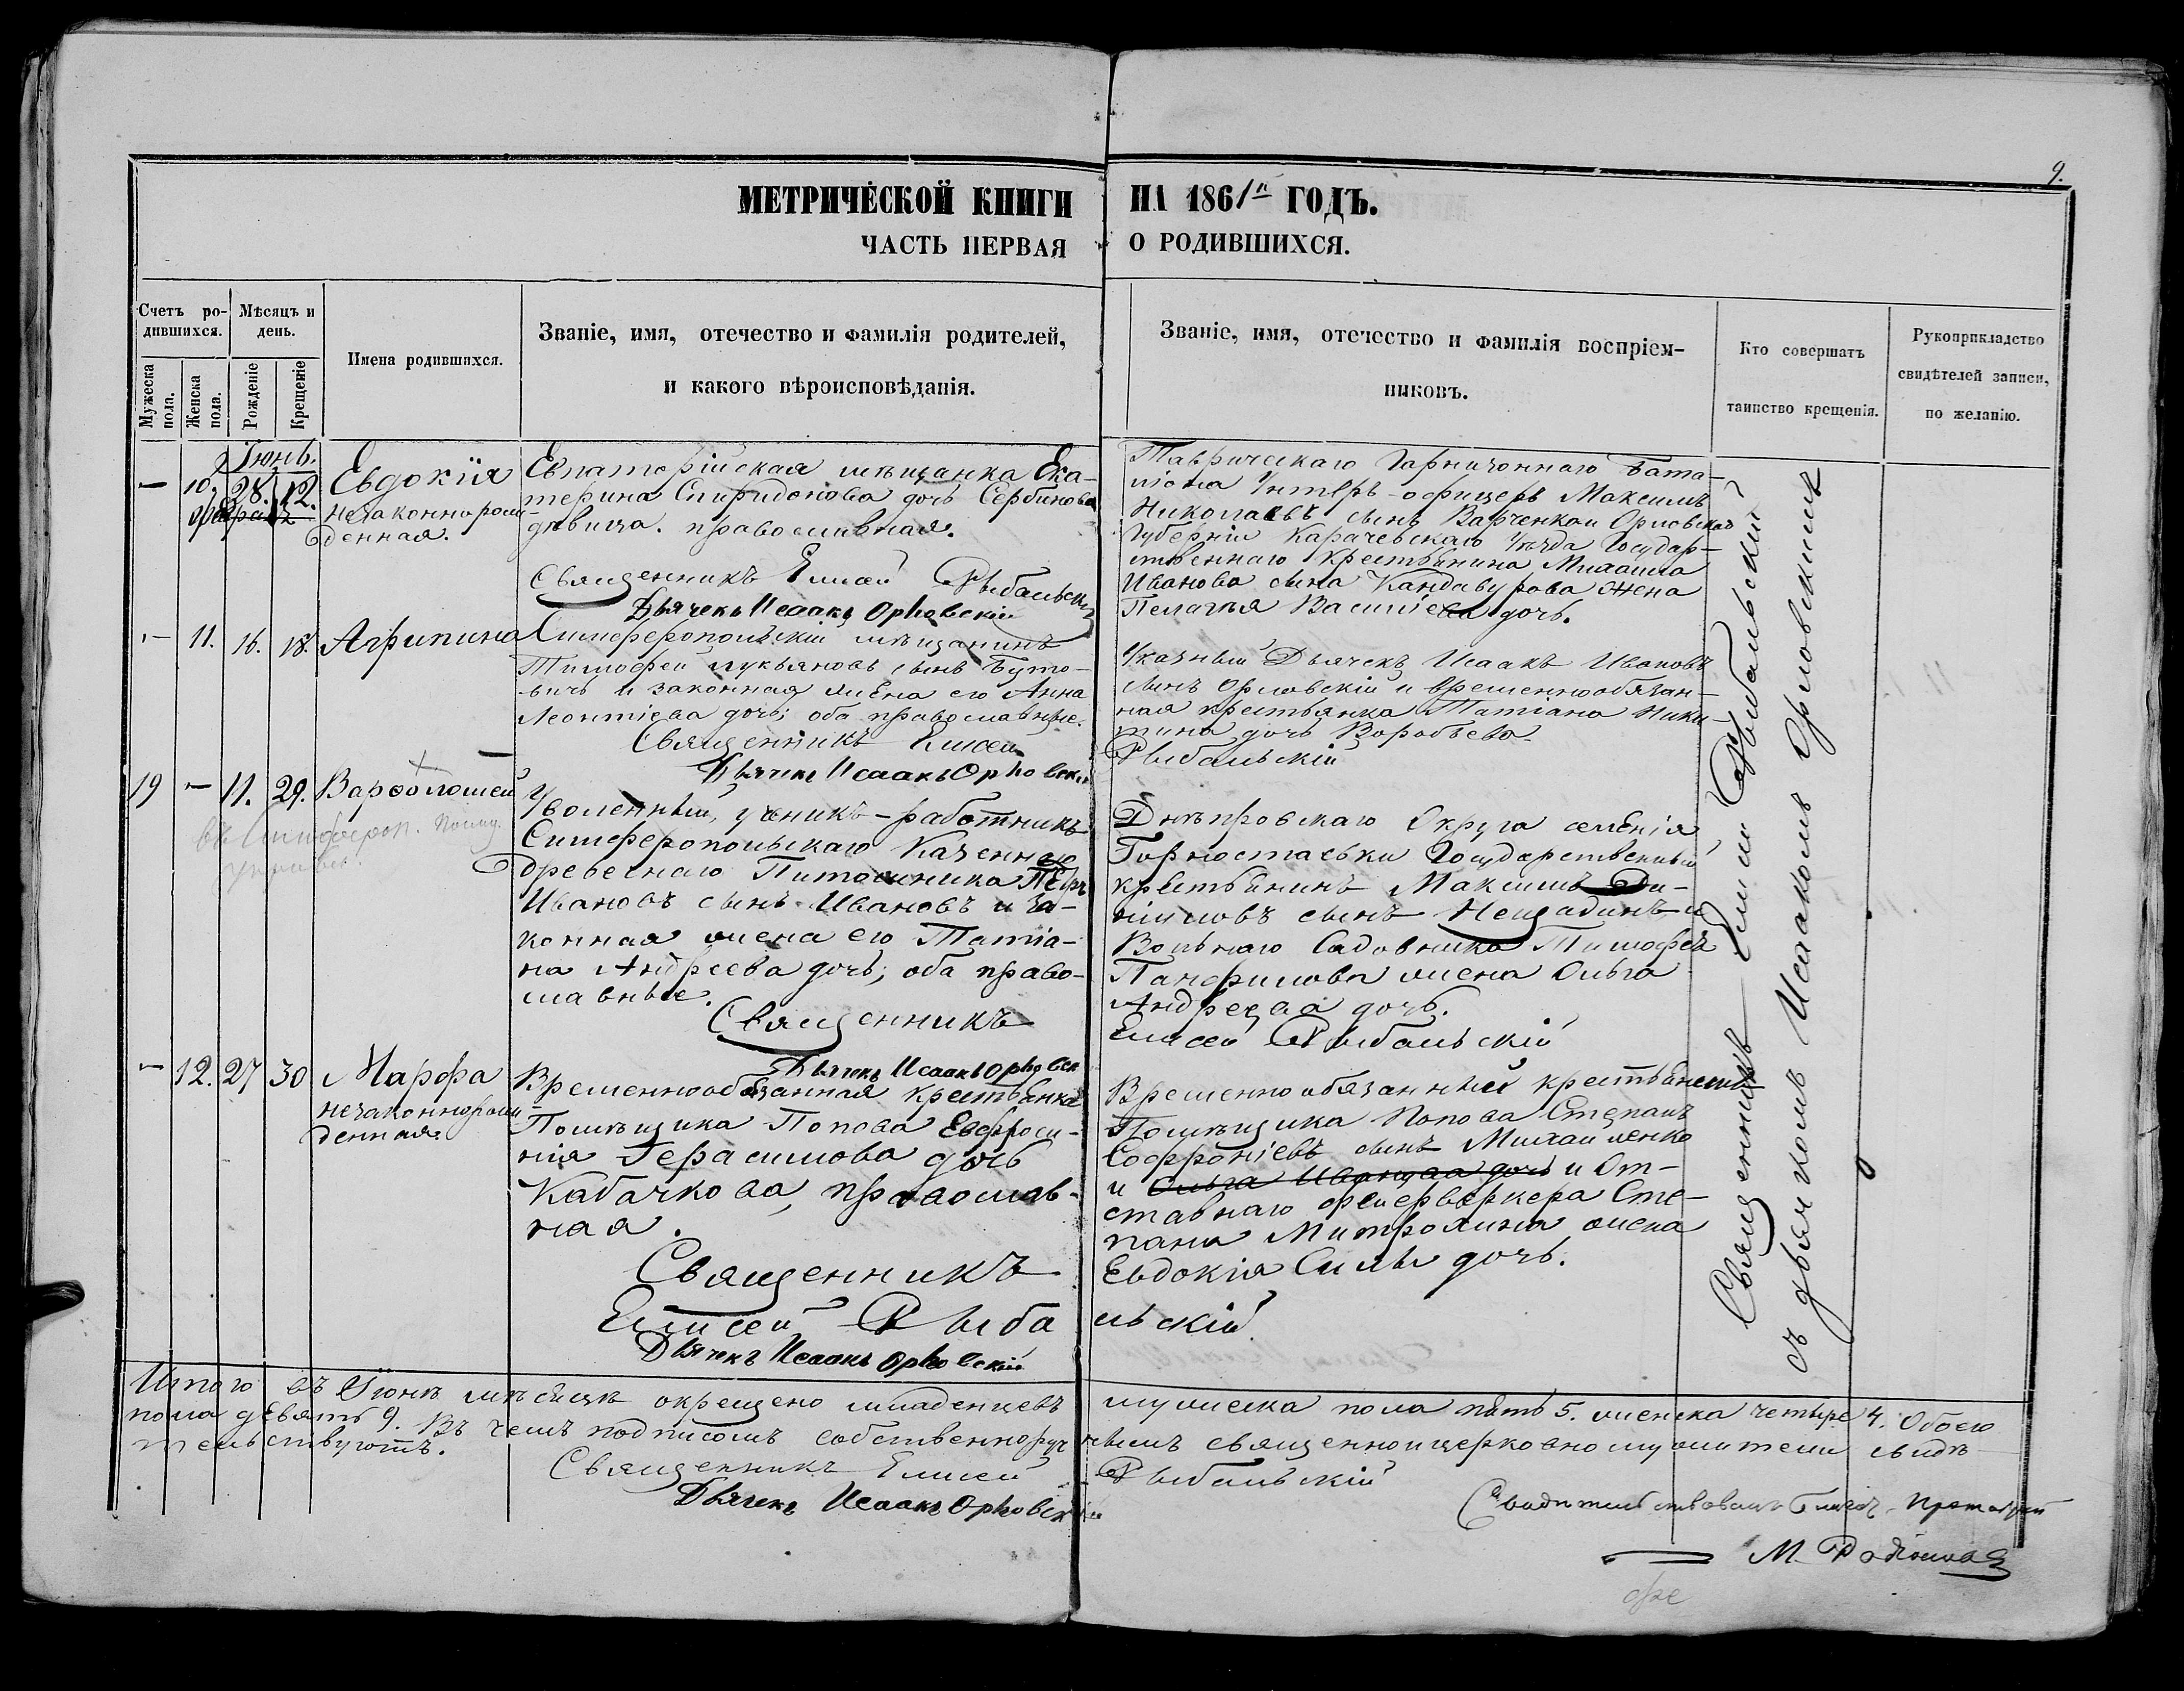 9.
МЕТРИЧЕСКОЙ КНИГИ НА 1861й ГОДЪ.
ЧАСТЬ ПЕРВАЯ О РОДИВШИХСЯ.
Счетъ ро-
дившихся.
Мужеска пола.
Женска пола.
Мѣсяцъ и
день.
Рожденіе
Крещеніе
Имена родившихся.
Званіе, имя, отечество и фамилія родителей,
и какого вѣроисповѣданія.
Званіе, имя, отечество и фамилія воспріем-
никовъ.
Кто совершалъ
таинство крещенія.
Рукоприкладство
свидѣтелей записи,
по желанію.
Іюнь.
— 10. 28. 12.
февраль
Евдокія
незаконнорож-
денная.
Евпаторійская мѣщанка Ека-
терина Спиридонова дочь Сербинова
дѣвица. православная.
Священникъ Елисей Рыбальскій
Дьячекъ Исаакъ Орловскій
Таврическаго Гарнизоннаго Бата-
ліона Унтеръ-офицеръ Максимъ
Николаевъ сынъ Варченко и Орловской
Губерніи Карачевскаго Уѣзда Государ-
ственнаго Крестьянина Михаила
Иванова сына Кандаурова Жена
Пелагія Василіева дочь.
— 11. 16. 18. Агрипина
Симферопольскій мѣщанинъ
Тимофей Лукьяновъ сынъ Буто-
вичъ и законная жена его Анна
Леонтіева дочь; оба православные.
Священникъ Елисей Рыбальскій
Дьячекъ Исаакъ Орловскій
Указный Дьячекъ Исаакъ Ивановъ
сынъ Орловскій и временнообязан-
ная крестьянка Татіана Ники-
тина дочь Воробьева
19 — 11. 29. Варфоломей
въ Симфероп.
Уволенный, ученикъ-работникъ
Симферопольскаго Казеннаго
Древеснаго Питомника Петръ
Ивановъ сынъ Ивановъ и за-
конная жена его Татіа-
на Андреева дочь; оба право-
славные.
Священникъ Елисей Рыбальскій
Дьячекъ Исаакъ Орловскій
Днѣпровскаго Округа селенія
Горностаевки Государственный
крестьянинъ Максимъ Да-
ниловъ сынъ Нещадинъ и
Вольнаго Садовника Тимофея
Панфилова жена Ольга
Андреева дочь.
— 12. 27 30 Марфа
незаконнорож-
денная.
Временнообязанная крестьянка
Помѣщика Попова Евфроси-
нія Герасимова дочь
Кабачкова, православ-
ная.
Священникъ
Елисей Рыбальскій
Дьячекъ Исаакъ Орловскій
Временнообязанный крестьянинъ
Помѣщика Попова Степанъ
Софроніевъ сынъ Михайленко
и Ольга Иванова дочь и От-
ставнаго фейерверкера Сте-
пана Митрохина жена
Евдокія Силы дочь.
Священникъ Елисей Рыбальскій
съ дьячкомъ Исаакомъ Орловскимъ
Итого въ Іюнѣ мѣсяцѣ окрещено младенцевъ мужеска пола пять 5. женска четыре 4. Обоего
пола девять 9. Въ чемъ подписомъ собственноручнымъ священноицерковнослужители свидѣ-
тельствуютъ.
Священникъ Елисей Рыбальскій
Дьячекъ Исаакъ Орловскій
Свидѣтельствовалъ Протоіерей
М. Родіоновъ